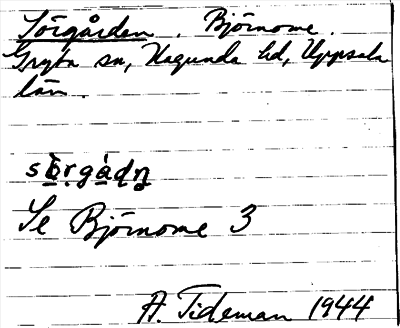 Sörgården. Björnome.
Gryta sn, Hagunda hd, Uppsala
län.
Se Björnome 3
A. Tideman 1944